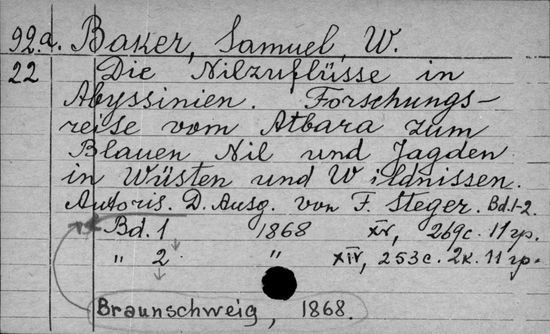 92.a. Baker, Samuel, W.
22 Die Nilzuflüsse in
Abyssinien. Forschungs-
reise vom Atbara zum
Blauen Nil und Jagden
in Wüsten und Wildnissen.
Autoris. D. Ausg. von F. Steger. Bd. 1-2.
Bd. 1 1868 XV, 269c. 11 гр.
„ 2 „ XIV, 253c. 2к. 11 гр.
Braunschweig, 1868.